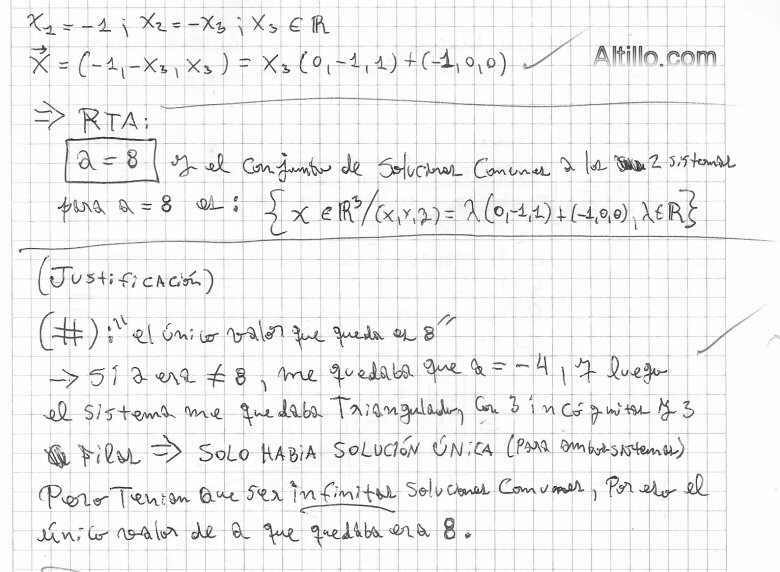 x₁ = -1 ; x₂ = -x₃ ; x₃ ∈ ℝ
x⃗ = (-1, -x₃, x₃) = x₃ (0, -1, 1) + (-1, 0, 0) ✓
Altillo.com
⇒ RTA:
a = 8 y el conjunto de soluciones comunes a los 2 sistemas
para a = 8 es: { x ∈ ℝ³/(x, y, z) = λ(0,-1,1) + (-1,0,0), λ ∈ ℝ }
(Justificación)
(#): "el único valor que queda es 8"
→ Si a era ≠ 8, me quedaba que a = -4, y luego
el sistema me quedaba Triangulado, con 3 incógnitas y 3
filas ⇒ SOLO HABIA SOLUCIÓN ÚNICA (para ambos sistemas)
Pero Tenian que ser infinitas soluciones comunes, Por eso el
único valor de a que quedaba era 8.